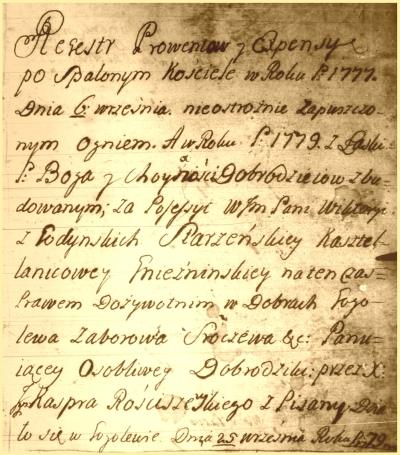 Regestr Prowentow y Expensy
po Spalonym Kościele w Roku P: 1777.
Dnia 6 września. nieostrożnie Zapuszczo-
nym Ogniem. A w Roku P: 1779. z Łaski
P: Boga y Choyności Dobrodzieiow zbu-
dowanym; za Possessyi W Jm Pani Wiktoryi
z Łodynskich Starzeńskiey Kasztel-
lanicowey Gnieźninskiey na ten czas
Prawem Dożywotnim w Dobrach Gogo-
lewa Zaborowa Sroczewa &c: Panu-
iącey Osobliwey Dobrodziki: przez X:
Kaspra Rościszewskiego z Pisany. Działo
to się w Gogolewie. Dnia 25 września Roku P: 79.